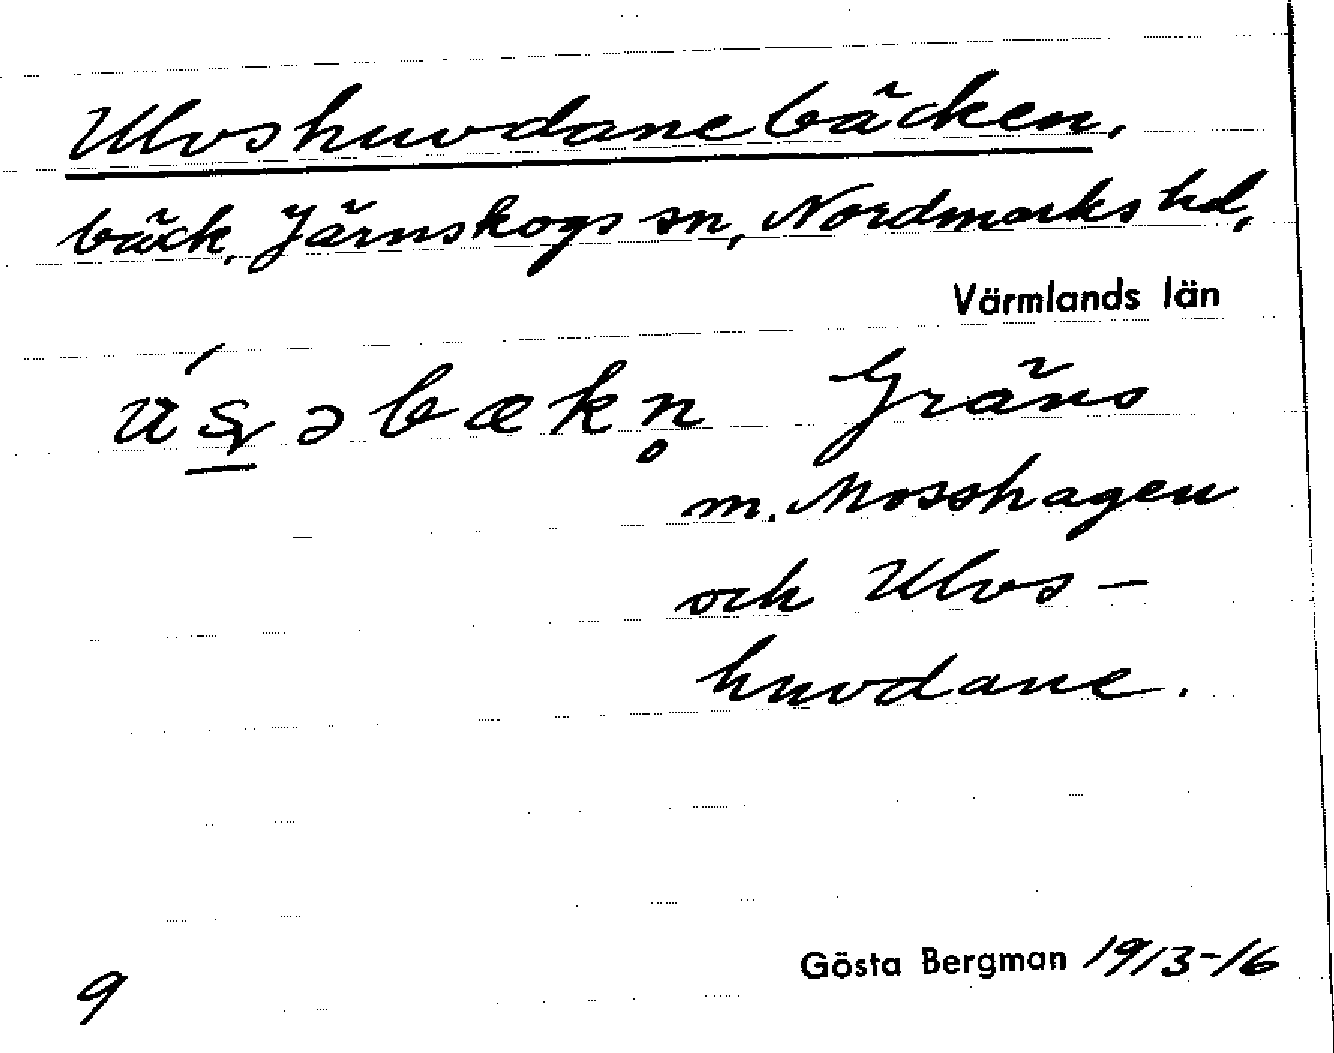 Ulvshuvdanebäcken,
bäck, Järnskogs sn, Nordmarks hd,
Värmlands län
Gräns
m. Mosshagen
och Ulvs-
huvdane.
Gösta Bergman 1913-16
9